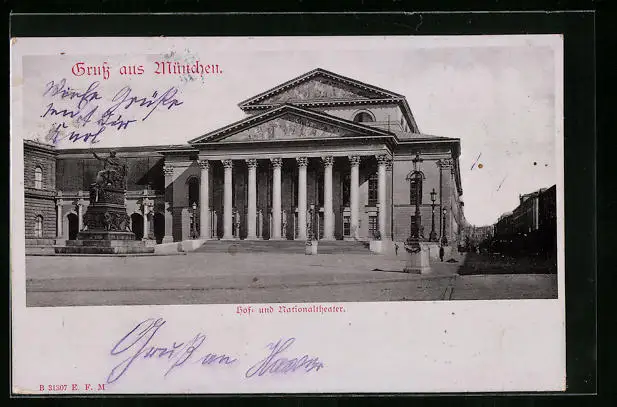 Gruß aus München.
Viele Grüße
Hof- und Nationaltheater.
Gruß an
B 31307 E. F. M